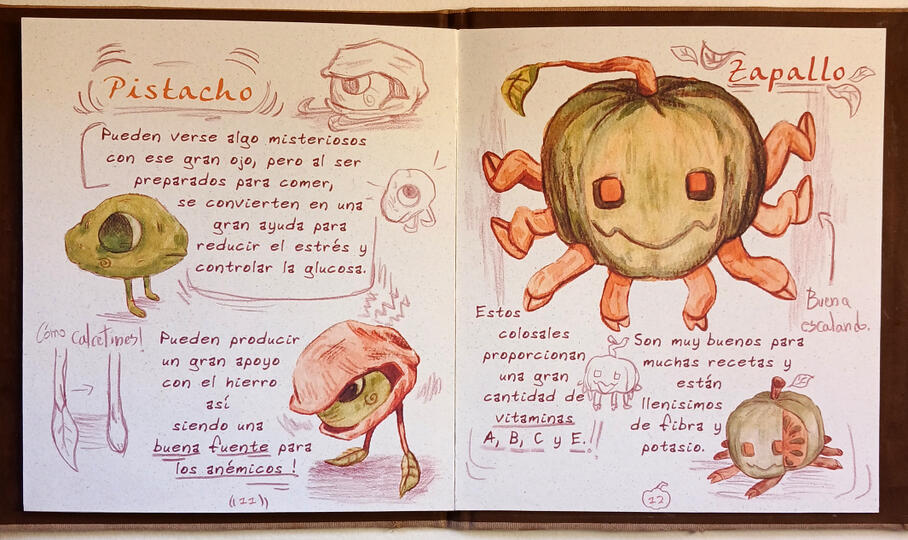 Pistacho
Pueden verse algo misteriosos
con ese gran ojo, pero al ser
preparados para comer,
se convierten en una
gran ayuda para
reducir el estrés y
controlar la glucosa.
Cómo calcetines!
Pueden producir
un gran apoyo
con el hierro
así
siendo una
buena fuente para
los anémicos!
((11))
Zapallo
Buena
escalando.
Estos
colosales
proporcionan
una gran
cantidad de
vitaminas
A, B, C y E.!!
Son muy buenos para
muchas recetas y
están
llenisimos
de fibra y
potasio.
12